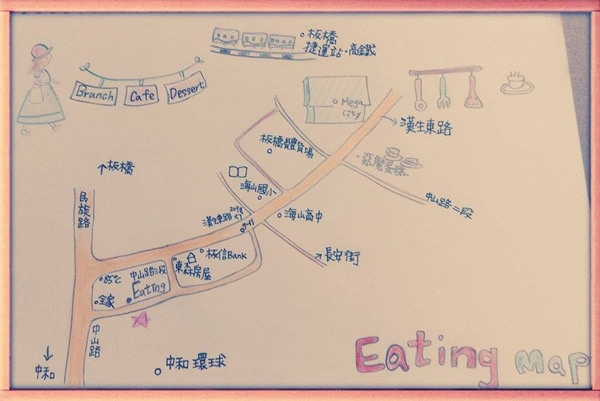 板橋
捷運站・高鐵
Brunch
Cafe
Dessert
Mega
City
漢生東路
板橋體育場
↑板橋
海山國小
中山路二段
民族路
海山高中
7-11
板信Bank
長安街
東森房屋
85°C
中山路二段
Eating
全家
中山路
中和
中和環球
Eating Map